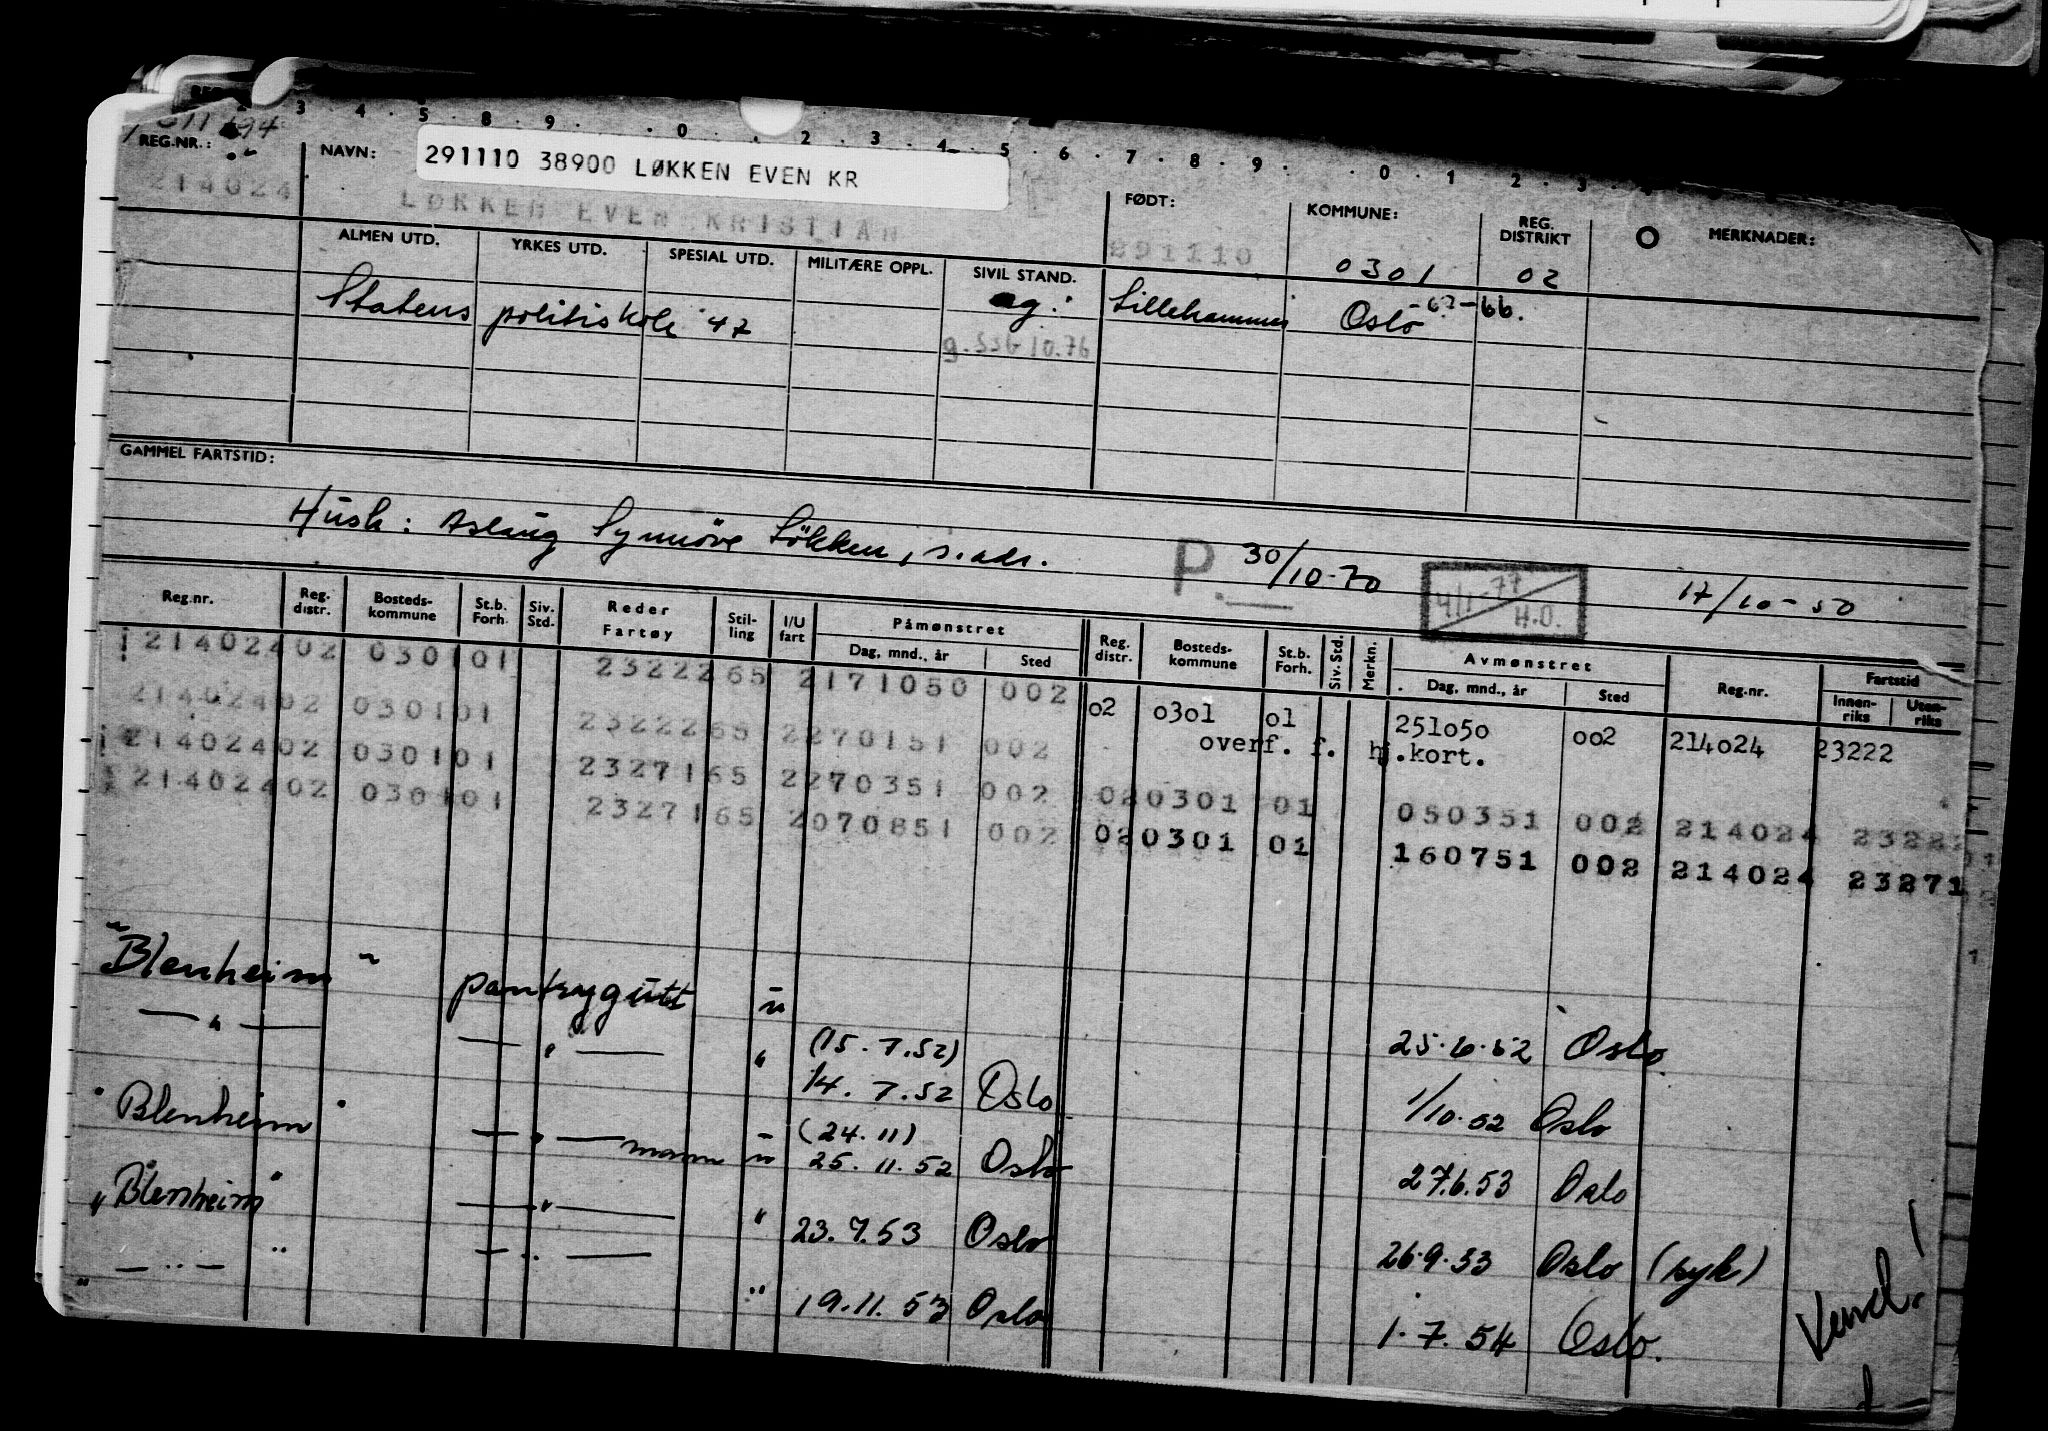 3 . 4 . 5 . 8 . 9 . . 0 . . 2 . 3 . 4 . 5 . 6 . 7 . 8 . 9 . . 0 . 1 . 2 . 3
REG.NR.: NAVN: 291110 38900 LØKKEN EVEN KR
214024 LØKKEN EVEN KRISTIAN
FØDT: KOMMUNE: REG. DISTRIKT MERKNADER:
291110 0301 02
ALMEN UTD. YRKES UTD. SPESIAL UTD. MILITÆRE OPPL. SIVIL STAND.
Statens politiskole 47 ug. Lillehammer Oslo -62-66.
g. 10.76
GAMMEL FARTSTID:
Husk: Aslaug Synnöve Lökken, s. adr. P. 30/10-70 4/1-77 H.O. 17/10-50
Reg.nr. Reg. distr. Bosteds-kommune St.b. Forh. Siv. Std. Reder Fartøy Stil-ling I/U fart Påmønstret Dag, mnd., år Sted Reg. distr. Bosteds-kommune St.b. Forh. Siv. Std. Merkn. Avmønstret Dag, mnd., år Sted Reg.nr. Fartstid Innen-riks Uten-riks
214024 02 0301 01 23222 65 2 171050 002 02 0301 01 251050 002 214024 23222
214024 02 0301 01 23222 65 2 270151 002 overf. f. hj.kort.
214024 02 0301 01 23271 65 2 270351 002 02 0301 01 050351 002 214024 23222
214024 02 0301 01 23271 65 2 070851 002 02 0301 01 160751 002 214024 23271
"Blenheim" pantrygutt u 25.6.52 Oslo
— " — — " — " (15.7.52) 14.7.52 Oslo 1/10.52 Oslo
"Blenheim" — " — mann u (24.11) 25.11.52 Oslo 27.6.53 Oslo
"Blenheim" — " — " 23.7.53 Oslo 26.9.53 Oslo (syk)
" — " — " — " — " 19.11.53 Oslo 1.7.54 Oslo.
Vend!